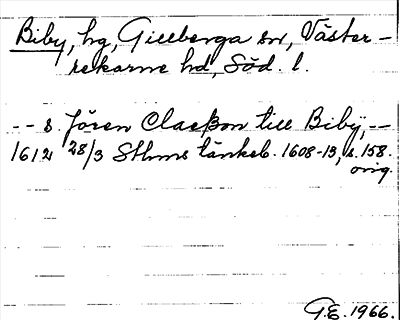 Biby, hg, Gillberga sn, Väster-
rekarne hd, Söd. l.
-- s. Jören Claeßon till Bibÿ, --
1612 28/3 Sthms tänkeb. 1608-13, s. 158.
orig.
G.E. 1966.